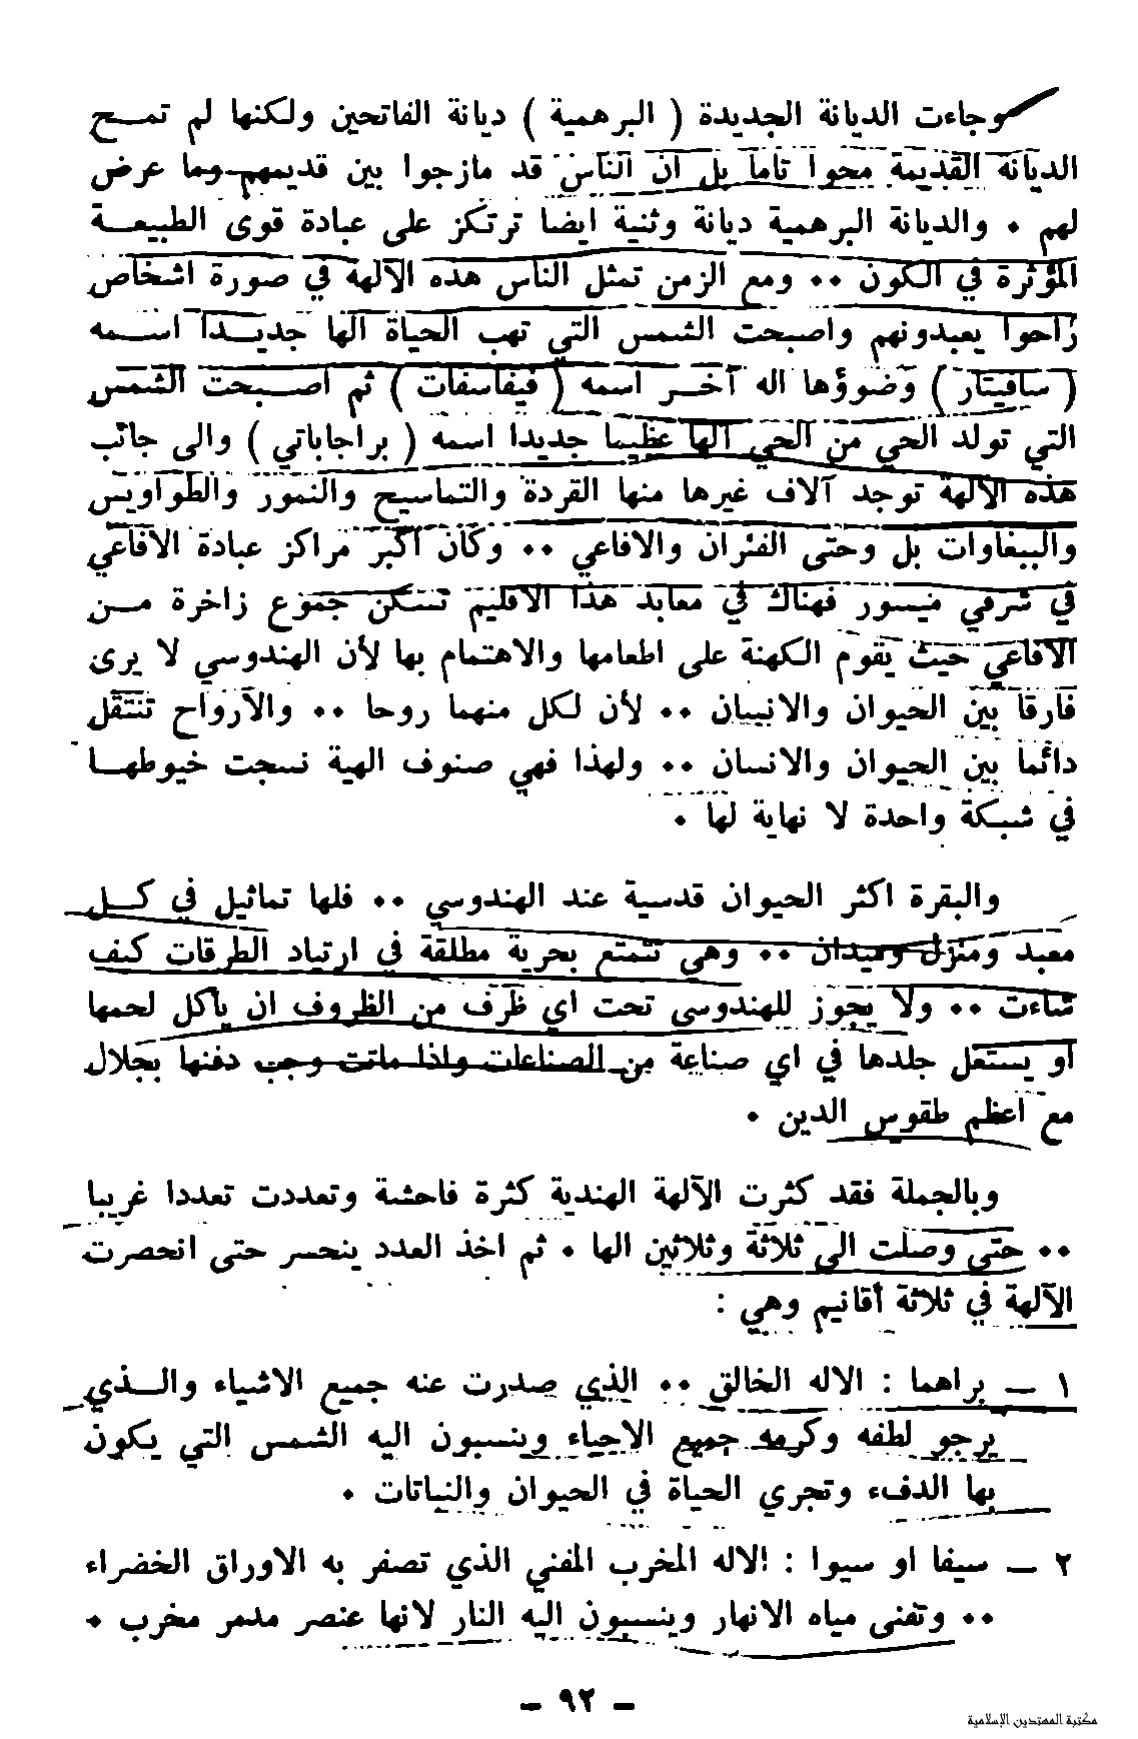 وجاءت الديانة الجديدة ( البرهمية ) ديانة الفاتحين ولكنها لم تمــح
الديانة القديمة محوا تاما بل ان الناس قد مازجوا بين قديمهم وما عرض
لهم • والديانة البرهمية ديانة وثنية ايضا ترتكز على عبادة قوى الطبيعــة
المؤثرة في الكون •• ومع الزمن تمثل الناس هذه الآلهة في صورة اشخاص
راحوا يعبدونهم واصبحت الشمس التي تهب الحياة الها جديــدا اســمه
( سافيتار ) وضوؤها اله آخــر اسمه ( فيفاسفات ) ثم اصــبحت الشمس
التي تولد الحي من الحي الها عظيما جديدا اسمه ( براجاباتي ) والى جانب
هذه الآلهة توجد آلاف غيرها منها القردة والتماسيح والنمور والطواويس
والببغاوات بل وحتى الفئران والافاعي •• وكان اكبر مراكز عبادة الافاعي
في شرقي ميسور فهناك في معابد هذا الاقليم تسكن جموع زاخرة مــن
الافاعي حيث يقوم الكهنة على اطعامها والاهتمام بها لأن الهندوسي لا يرى
فارقا بين الحيوان والانسان •• لأن لكل منهما روحا •• والآرواح تنتقل
دائما بين الحيوان والانسان •• ولهذا فهي صنوف الهية نسجت خيوطهــا
في شبكة واحدة لا نهاية لها •
والبقرة اكثر الحيوان قدسية عند الهندوسي •• فلها تماثيل في كــل
معبد ومنزل وميدان •• وهي تتمتع بحرية مطلقة في ارتياد الطرقات كيف
شاءت •• ولا يجوز للهندوسي تحت اي ظرف من الظروف ان يأكل لحمها
او يستغل جلدها في اي صناعة من الصناعات واذا ماتت وجب دفنها بجلال
مع اعظم طقوس الدين •
وبالجملة فقد كثرت الآلهة الهندية كثرة فاحشة وتعددت تعددا غريبا
•• حتى وصلت الى ثلاثة وثلاثين الها • ثم اخذ العدد ينحسر حتى انحصرت
الآلهة في ثلاثة أقانيم وهي :
١ ــ براهما : الاله الخالق •• الذي صدرت عنه جميع الاشياء والــذي
يرجو لطفه وكرمه جميع الاحياء وينسبون اليه الشمس التي يكون
بها الدفء وتجري الحياة في الحيوان والنباتات •
٢ ــ سيفا او سيوا : الاله المخرب المفني الذي تصفر به الاوراق الخضراء
•• وتفنى مياه الانهار وينسبون اليه النار لانها عنصر مدمر مخرب •
ـ ٩٢ ـ
مكتبة المهتدين الإسلامية